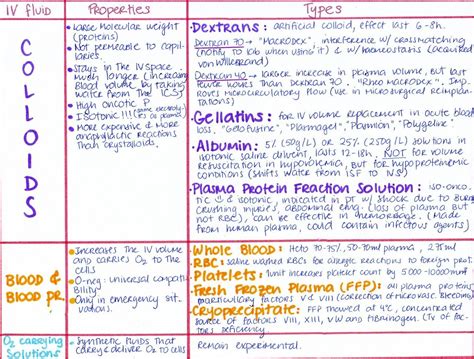 IV fluid
Properties
Types
COLLOIDS
• Large molecular weight
(proteins)
• Not permeable to capil-
laries.
• Stays in the IV space
much longer (increasing
blood volume by taking
water from the ICS)
• High oncotic P
• Isotonic!!! (same osmolarity
as plasma)
• More expensive & more
anaphylactic reactions
than crystalloids.
• Dextrans: artificial colloid, effect last 6-8h.
Dextran 70 → "Macrodex", interference w/ crossmatching
(notify to lab when using it) & w/ haemostasis (acquired
von Willebrand)
Dextran 40 → larger increase in plasma volume, but last
fewer hours than Dextran 70. "Rheo macrodex". Im-
proves microcirculatory flow (use in microsurgical reimplan-
tations)
• Gellatins: for IV volume replacement in acute blood
loss, "Gelofusine", "Plasmagel", "Plasmion", "Polygeline".
• Albumin: 5% (50g/L) or 25% (250g/L) solutions in
isotonic saline, lasts 12-18h. NOT for volume
resuscitation in hypovolemia, but for hypoproteinemic
conditions (shifts water from ISF to IVS)
• Plasma Protein Fraction Solution: iso-onco-
tic & isotonic, indicated in pt w/ shock due to burns
crushing injuries, abdominal emg. (loss of plasma but
not RBC), can be effective in hemorrhage. (Made
from human plasma, could contain infectious agents)
BLOOD &
BLOOD PR.
• Increases the IV volume
and carries O2 to the
cells
• O-neg: universal compati-
bility
• Only in emergency sit-
uations.
• Whole Blood: Hcto 70-75%, 50-70ml plasma,
• RBC: saline washed RBCs for allergic reactions to foreign prot.
• Platelets: 1 unit increases platelet count by 5000-10000/ml
• Fresh Frozen Plasma (FFP): all plasma proteins,
factors V & VIII (correction of microvasc. bleeding)
• Cryoprecipitate: FFP thawed at 4°C, concentrated
source of factors VIII, XIII, vW and fibrinogen. Ctx of fac-
tors deficiency.
O2 carrying
Solutions
• Synthetic fluids that
carry & deliver O2 to cells
Remain experimental.